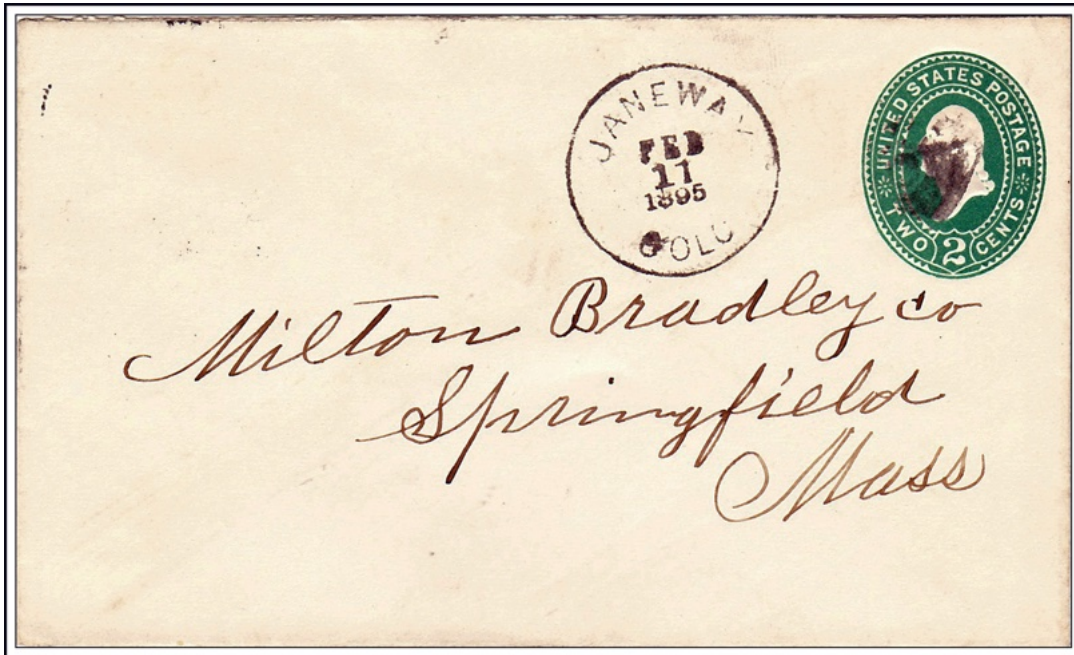 JANEWAY
FEB
11
1895
COLO
UNITED STATES POSTAGE
TWO 2 CENTS
Milton Bradley co
Springfield
Mass